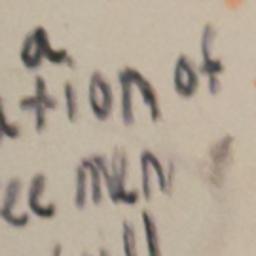 a
ation of
ee men
ill